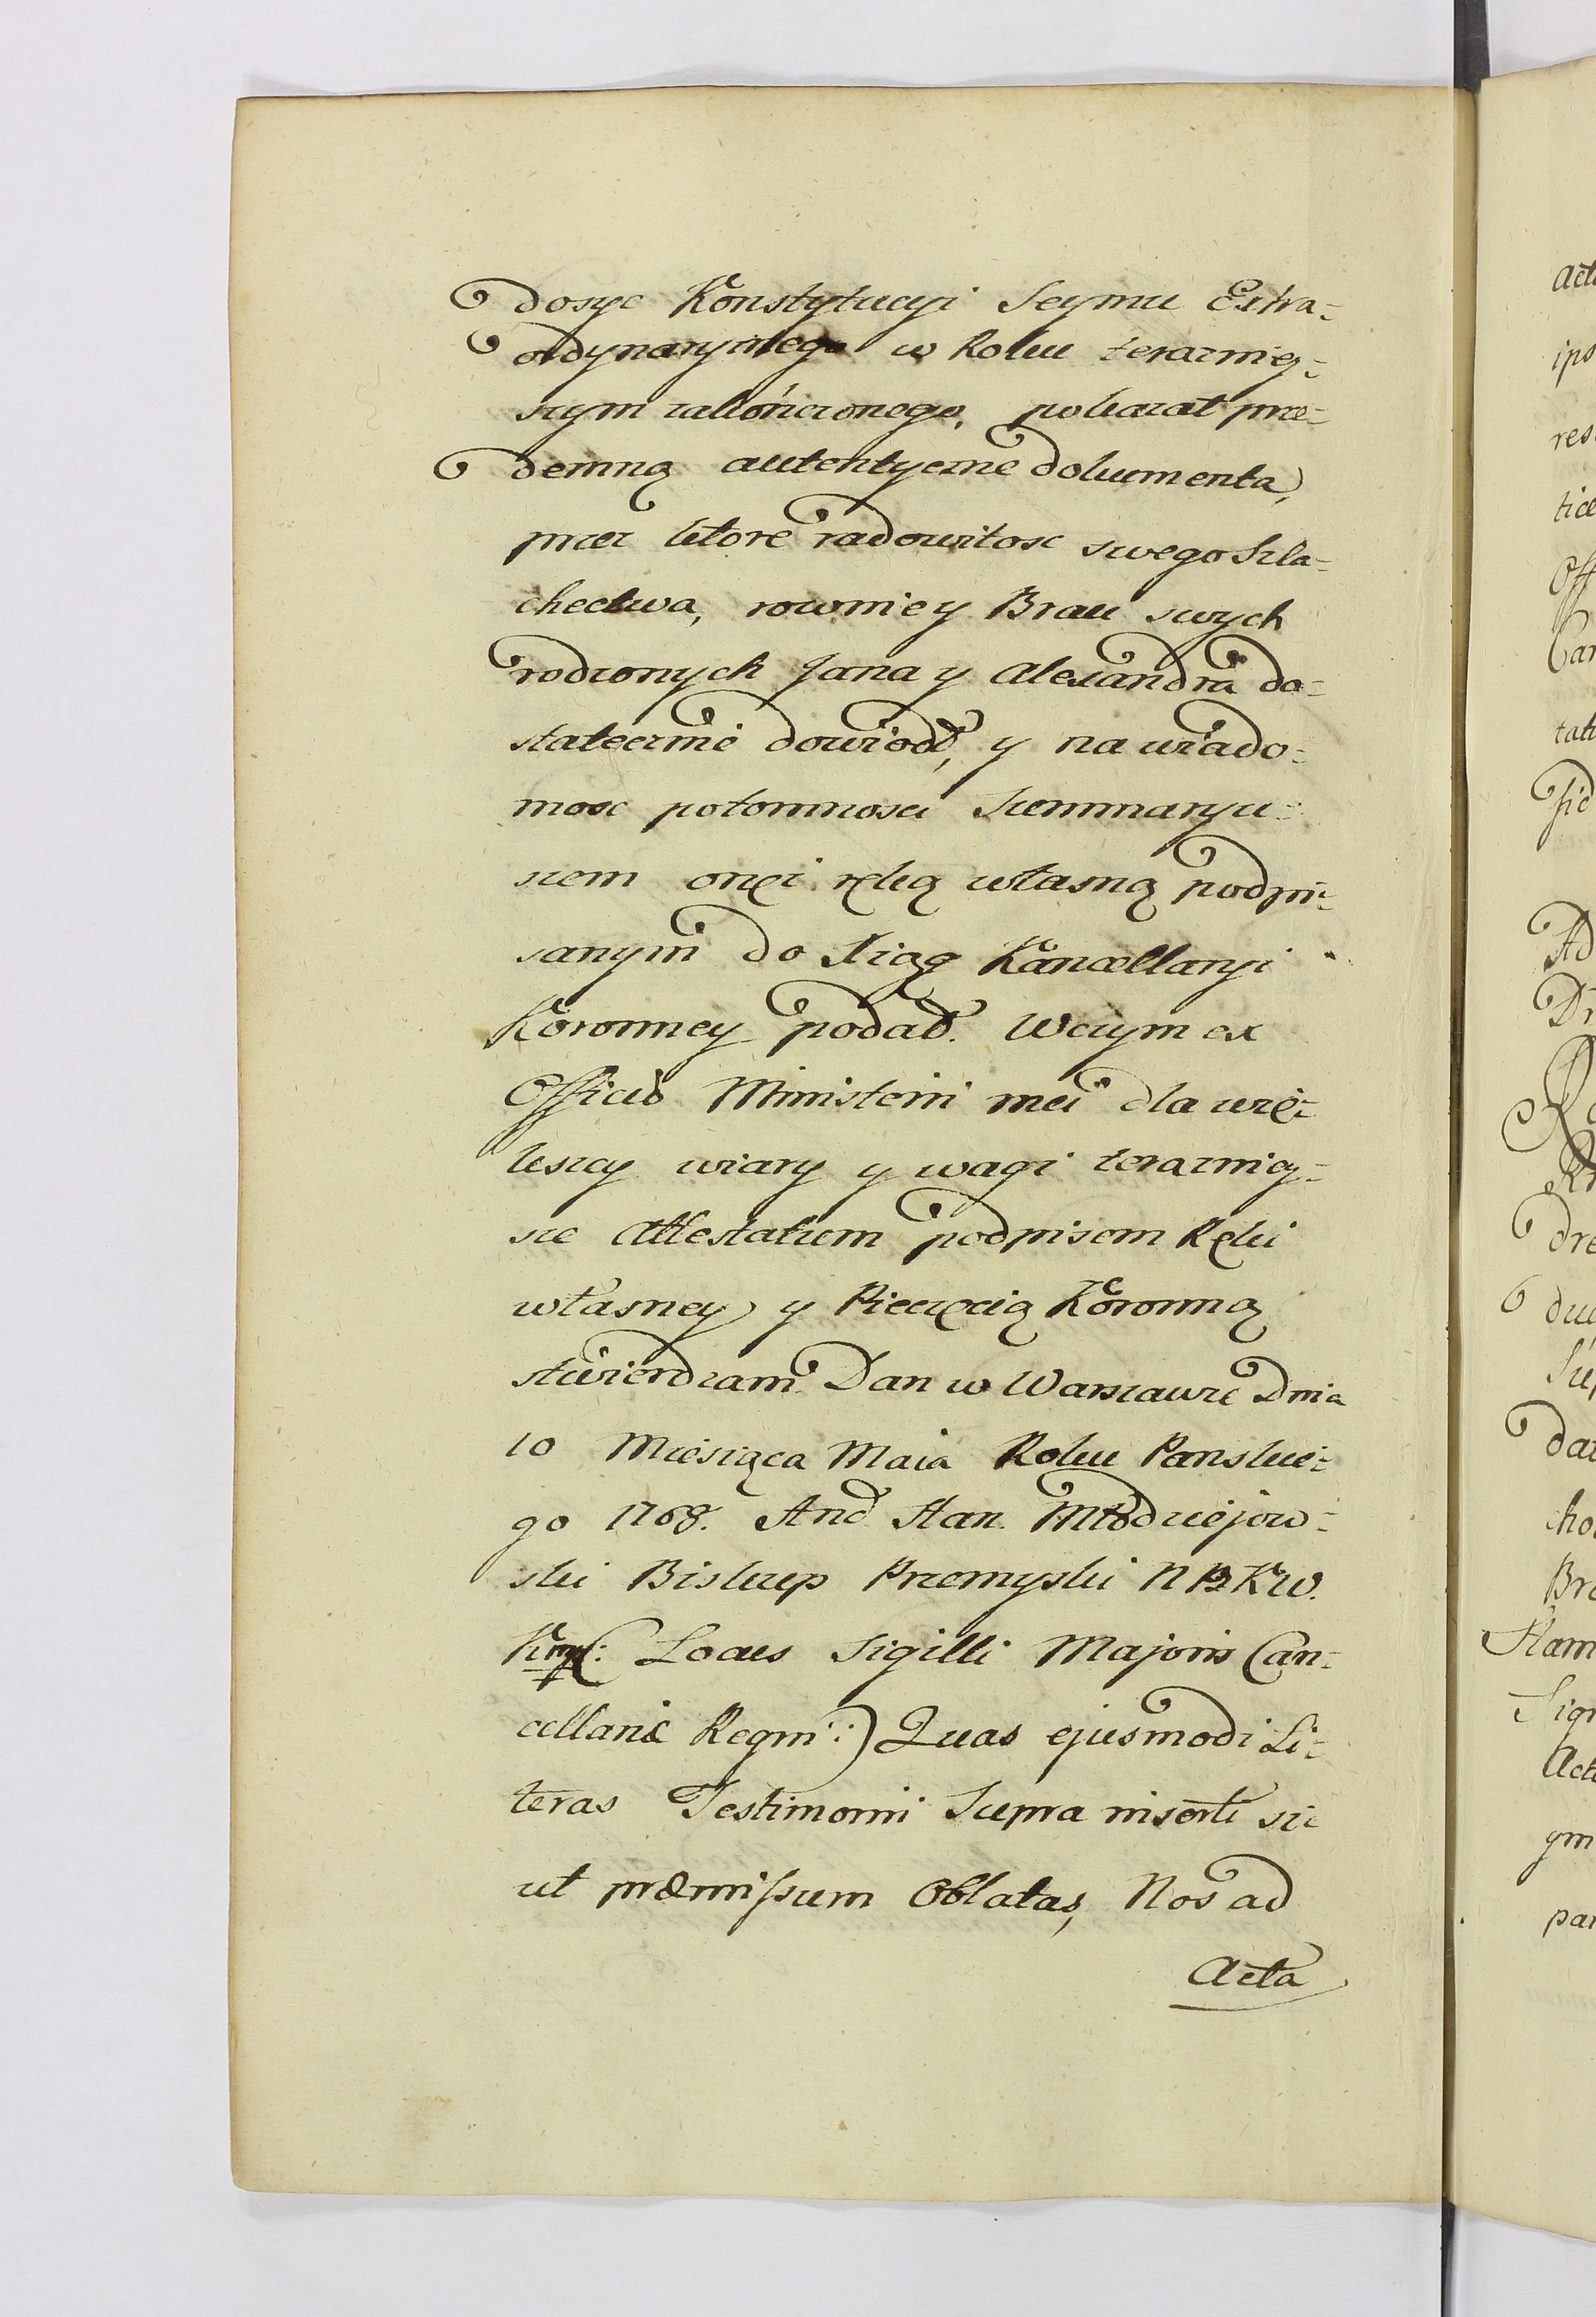 dosyc Konstytucyi Seymu Extra=
ordynaryinego w Roku terazniey=
szym zakończonego, pokazał prze=
demną autentyczne dokumenta,
przez ktore rodowitosc swego Szla=
chectwa, rowniey Braci swych
rodzonych Jana y Alexandra do=
statecznie dowiodł, y na wiado=
mosc potomnosci Summaryu=
szem onęi ręką własną podpi=
sanym do Xiąg Kancellaryi
Koronney podał. W czym ex
Officio Ministerii mei dla wię=
kszey wiary y wagi terazniey=
sze Attestatum podpisem Ręki
własney y Pieczęcią Koronną
stwierdzam Dan w Warszawie Dnia
10 Miesiąca Maia Roku Panskie=
go 1768. And Stan. Młodziejow=
ski Biskup Przemyski N P K W.
Kor: Locus Sigilli Majoris Can=
cellariæ Regni:) Quas ejusmodi Li=
teras Testimonii Supra inserti sic
ut præmissum Oblatas, Nos ad
Acta
Acta
ips
res
tice
Off
Can
tat
fid
Ad
Dr
R
dre
du
Sup
dat
cho
Bre
Stam
Sigr
Acta
gm
par